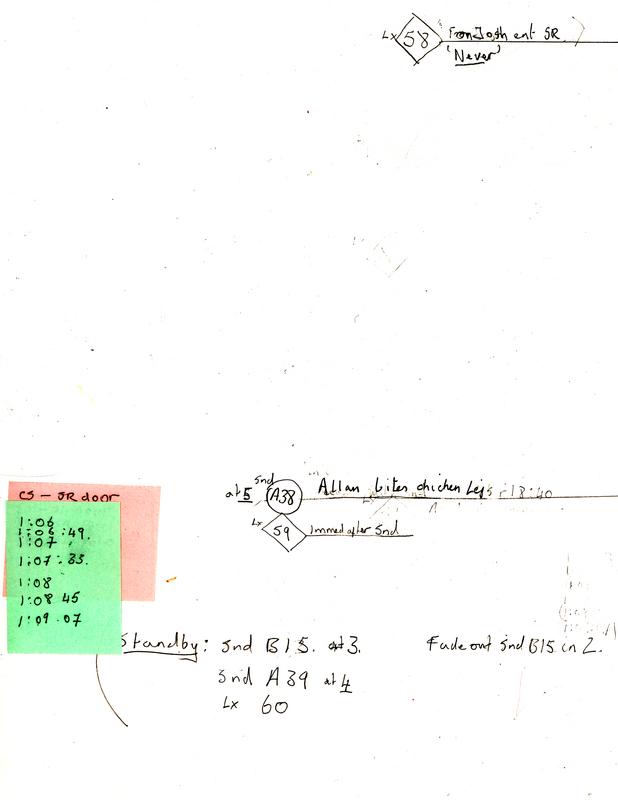 Lx 58 From Josh ent SR
'Never'
at 5 Snd A38 Allan bites chicken Legs
Lx 59 Immed after Snd
CS - SR door
1:06
1:06:49.
1:07
1:07:33.
1:08
1:08 45
1:09.07
Standby: Snd B15. at 3. Fade out Snd B15 in 2.
Snd A39 at 4
Lx 60